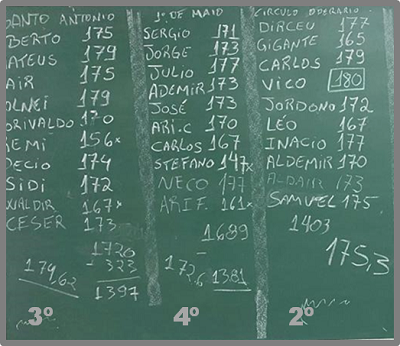 SANTO ANTONIO
BERTO 175
ATEUS 179
AIR 175
OLNEI 179
ORIVALDO 170
REMI 156x
DECIO 174
SIDI 172
VALDIR 167x
CESER 173
1720
- 323
1397
179,62
3º
1º. DE MAIO
SERGIO 171
JORGE 173
JULIO 177
ADEMIR 173
JOSÉ 173
ARI.C 170
CARLOS 167
STEFANO 147x
NECO 177
ARIF. 161x
1689
1381
172,6
4º
CIRCULO OPERARIO
DIRCEU 177
GIGANTE 165
CARLOS 179
VICO 180
JORDONO 172
LÉO 167
INACIO 177
ALDEMIR 170
ALDAIR 173
SAMUEL 175
1403
175,3
2º